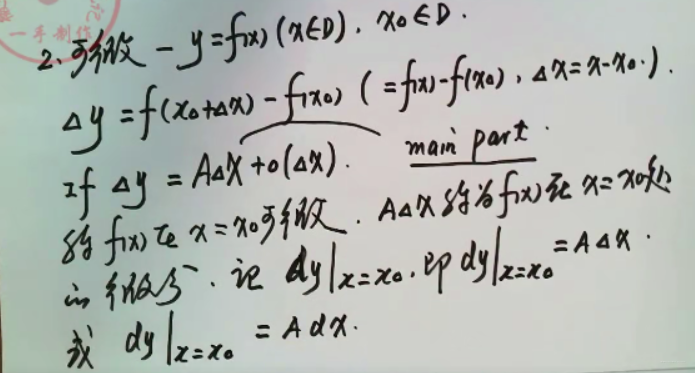 一手制作
2. 可微 - y=f(x) (x∈D). x₀∈D.
Δy = f(x₀+Δx) - f(x₀) (=f(x)-f(x₀), Δx=x-x₀.).
If Δy = AΔx+o(Δx). main part.
称 f(x) 在 x=x₀可微. AΔx 称为 f(x) 在 x=x₀处
的微分. 记 dy|x=x₀. 即 dy|x=x₀ = AΔx.
或 dy|x=x₀ = A dx.